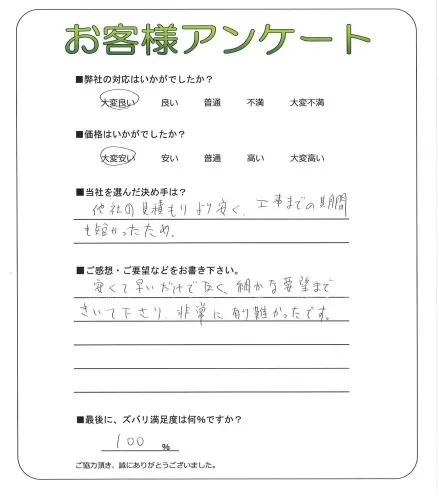 お客様アンケート
■弊社の対応はいかがでしたか？
大変良い 良い 普通 不満 大変不満
■価格はいかがでしたか？
大変安い 安い 普通 高い 大変高い
■当社を選んだ決め手は？
他社の見積もりより安く、工事までの期間
も短かったため。
■ご感想・ご要望などをお書き下さい。
安くて早いだけで良く、細かな要望まで
きいて下さり、非常に有り難かったです。
■最後に、ズバリ満足度は何％ですか？
100 %
ご協力頂き、誠にありがとうございました。